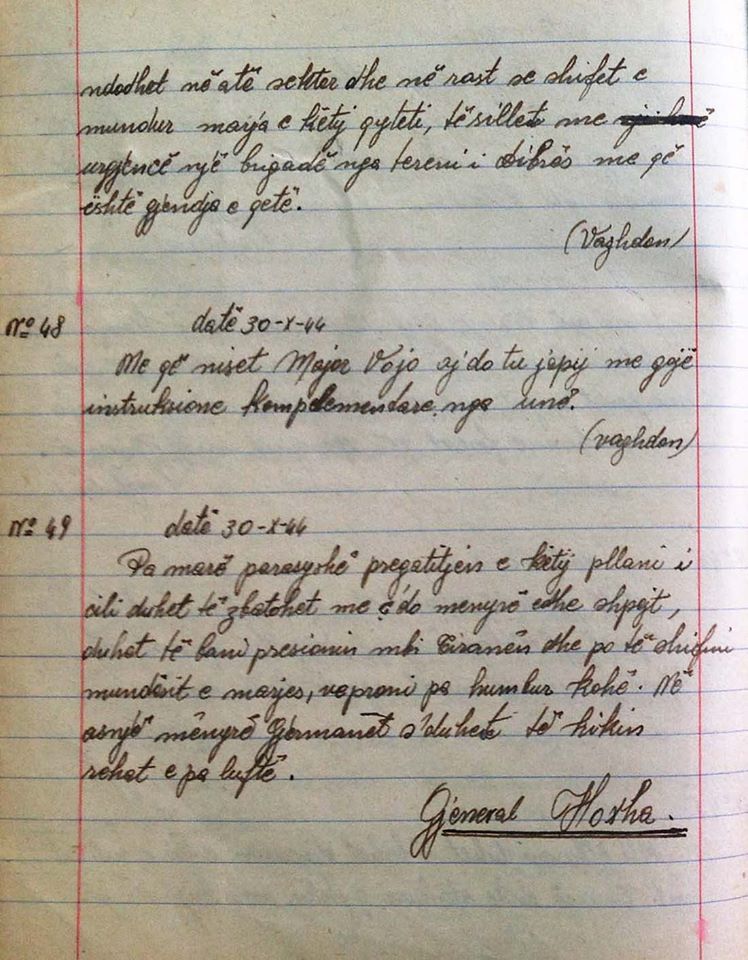 ndodhet në atë sektor dhe në rast se shifet e
mundur marrja e këtij qyteti, të sillet me
urgjencë një brigadë nga tereni i Dibrës me që
është gjëndja e qetë.
(Vazhdon)
Nº 48
datë 30-X-44
Me që niset Major Vojo aj do tu japij me gojë
instruksione komplementare nga unë.
(vazhdon)
Nº 49
datë 30-X-44
Pa marë parasyshë pregatitjen e këtij pllani i
cili duhet të zbatohet me ç'do menyrë edhe shpejt,
duhet të bani presionin mbi Tiranën dhe po të shifni
mundësit e marjes, vaproni pa humbur kohë. Në
asnjë mënyrë Gjermanët s'duhet të hikin
rehat e pa luftë.
Gjeneral Hoxha.